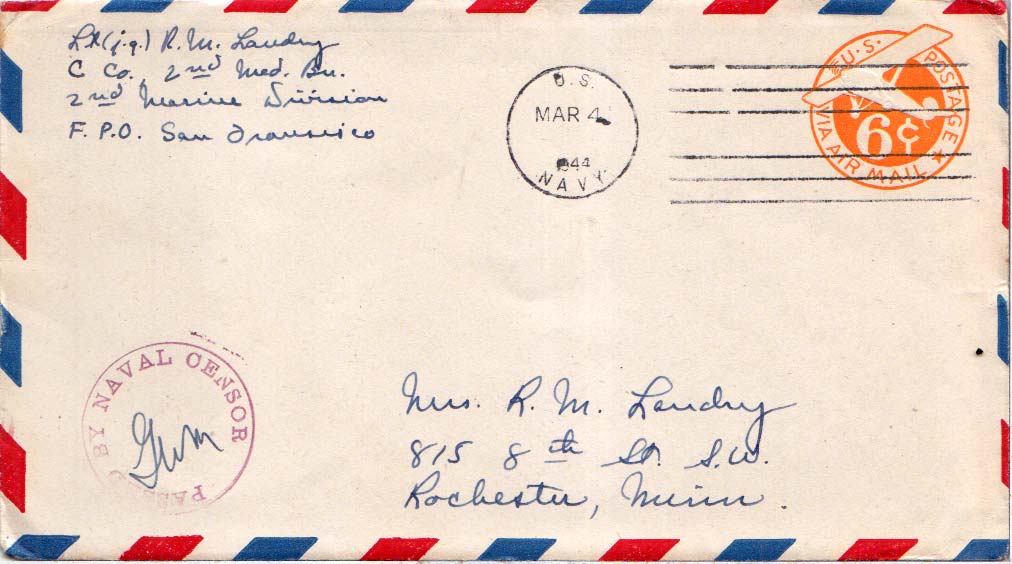 Lt (j.g.) R. M. Landry
C Co., 2nd Med. Bn.
2nd Marine Division
F. P.O. San Fransisco
U.S.
MAR 4
1944
NAVY
U.S. POSTAGE
6¢
VIA AIR MAIL
PASSED BY NAVAL CENSOR
Mrs. R. M. Landry
815 8th St. S.W.
Rochester, Minn.